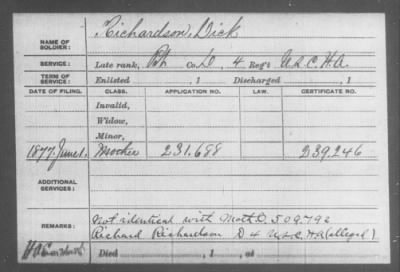 NAME OF SOLDIER: Richardson, Dick
SERVICE: Late rank, Co. D, 4 Reg't U.S.C.H.A.
TERM OF SERVICE: Enlisted , 1 Discharged , 1
DATE OF FILING. CLASS. APPLICATION NO. LAW. CERTIFICATE NO.
Invalid,
Widow,
Minor,
1877. June 1. Mother 231.688 239.246
ADDITIONAL SERVICES:
REMARKS: Not identical with Moth. O. 509.792
Richard Richardson D 4 U.S.C.H.A. (alleged)
Died , 1 , at